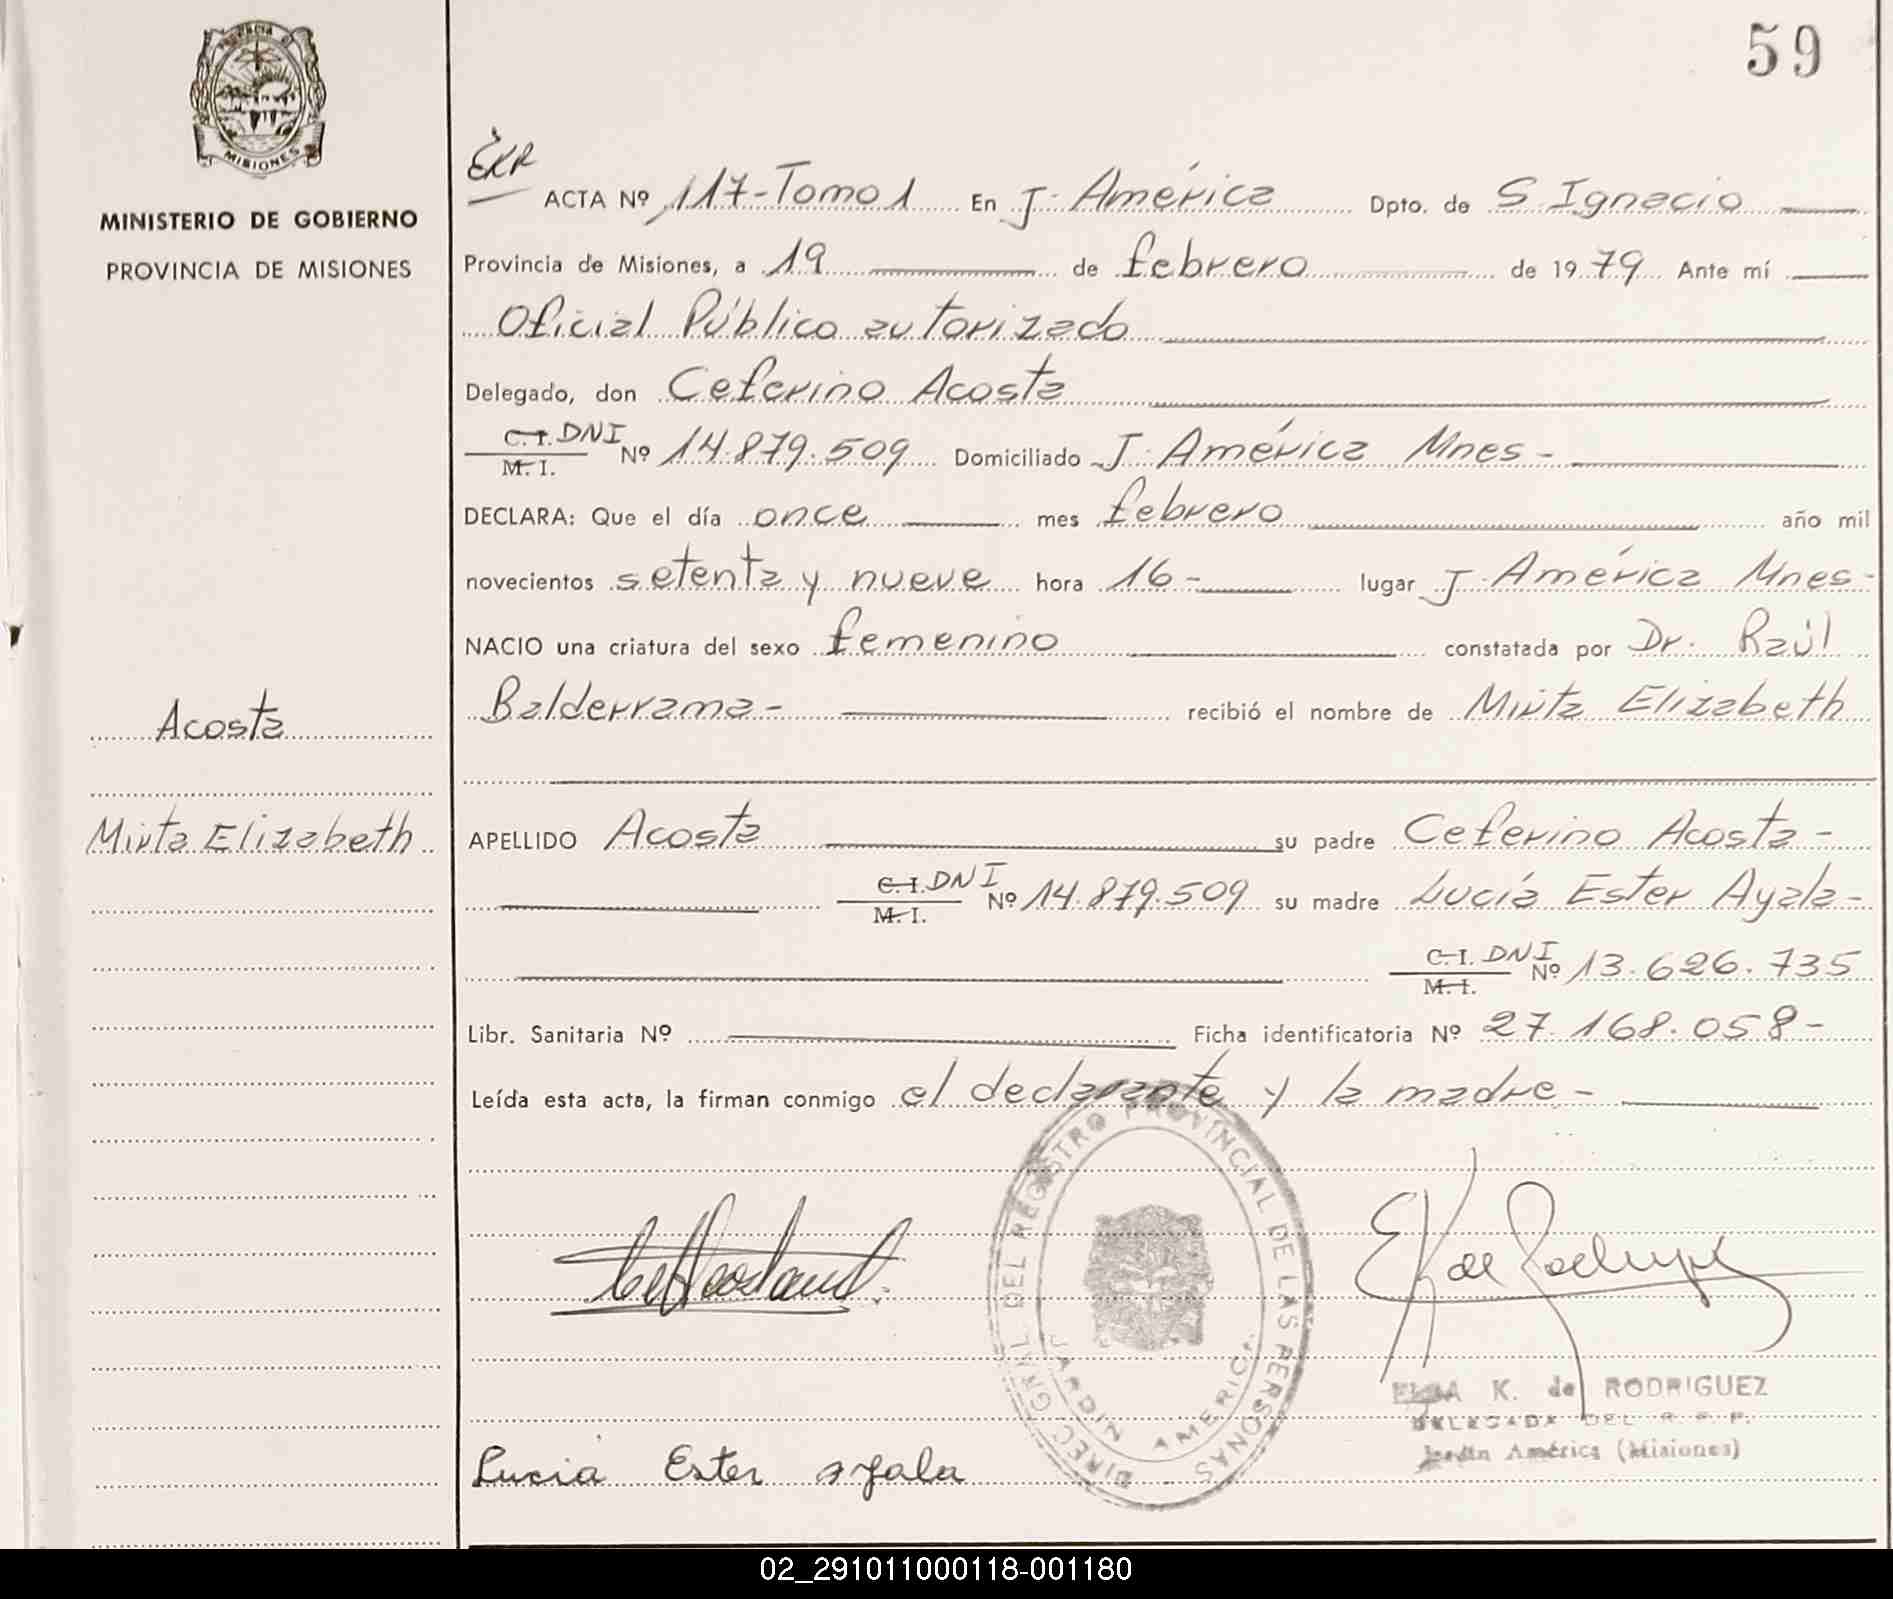 59
PROVINCIA D
MISIONES
MINISTERIO DE GOBIERNO
PROVINCIA DE MISIONES
Acosta
Mirta Elizabeth
ACTA Nº 117-Tomo 1 En J. América Dpto. de S Ignacio
Provincia de Misiones, a 19 de febrero de 1979 Ante mí
Oficial Público autorizado
Delegado, don Ceferino Acosta
C. I. DNI
M. I. Nº 14.879.509 Domiciliado J. América Mnes-
DECLARA: Que el día once mes febrero año mil
novecientos setenta y nueve hora 16- lugar J. América Mnes-
NACIO una criatura del sexo femenino constatada por Dr. Raúl
Balderrama- recibió el nombre de Mirta Elizabeth
APELLIDO Acosta su padre Ceferino Acosta-
C. I. DNI
M. I. Nº 14.879.509 su madre Lucía Ester Ayala-
C. I. DNI
M. I. Nº 13.626.735
Libr. Sanitaria Nº Ficha identificatoria Nº 27.168.058-
Leída esta acta, la firman conmigo el declarante y la madre-
DIREC GRAL DEL REGISTRO PROVINCIAL DE LAS PERSONAS
JARDIN AMERICA
E K de Rodriguez
ELSA K. de RODRIGUEZ
DELEGADA DEL R. P. P.
Jardín América (Misiones)
Lucia Ester ayala
02_291011000118-001180